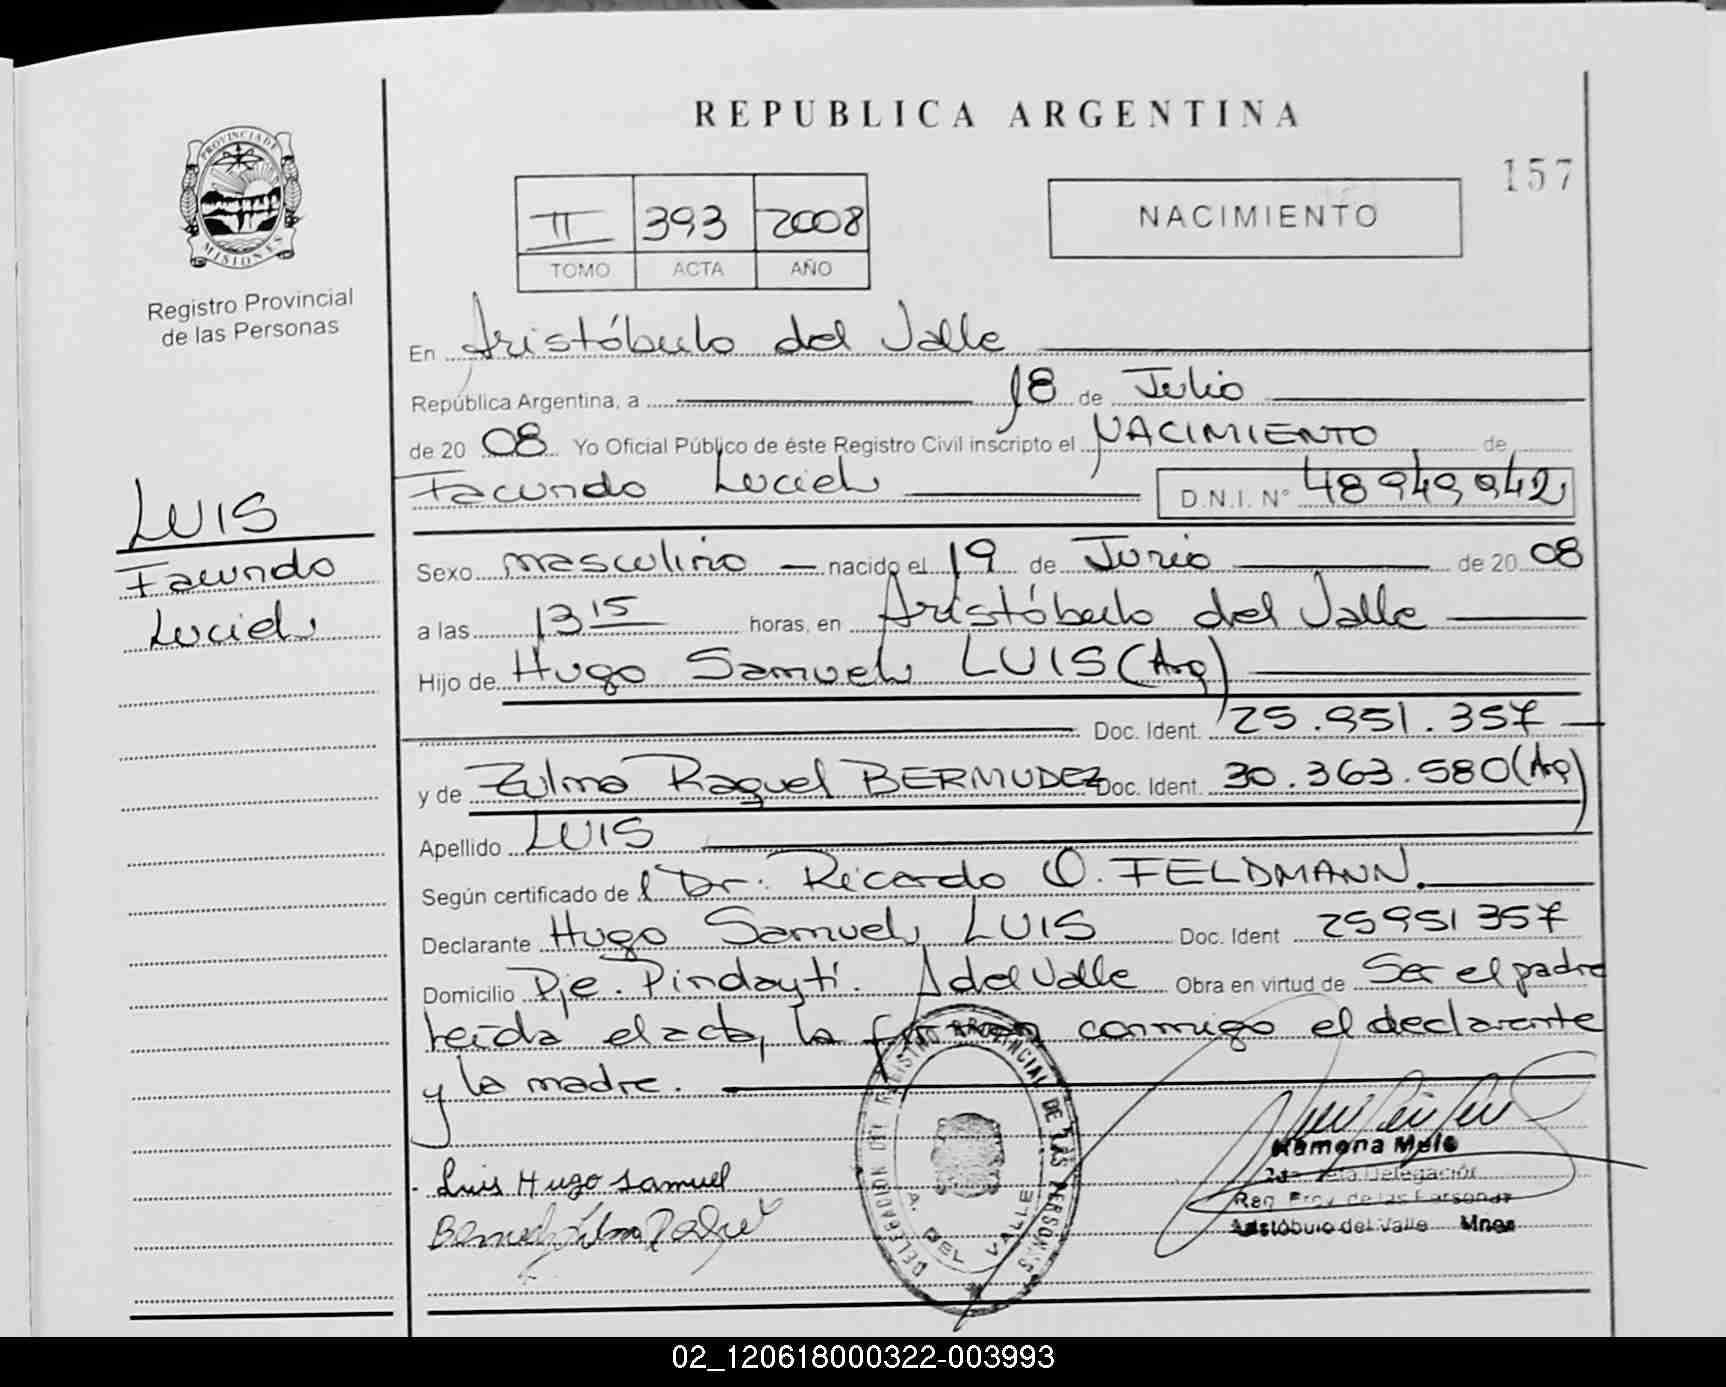 REPUBLICA ARGENTINA
157
PROVINCIA DE
MISIONES
Registro Provincial
de las Personas
II 393 2008
TOMO ACTA AÑO
NACIMIENTO
En Aristóbulo del Valle
República Argentina, a 18 de Julio
de 20 08 Yo Oficial Público de éste Registro Civil inscripto el NACIMIENTO de
Facundo Luciel
D.N.I. N° 48949942
LUIS
Facundo
Luciel
Sexo masculino nacido el 19 de Junio de 20 08
a las 13 15 horas, en Aristóbulo del Valle
Hijo de Hugo Samuel LUIS (Arg)
Doc. Ident. 25.951.357
y de Zulma Raquel BERMUDEZ Doc. Ident. 30.363.580 (Arg)
Apellido LUIS
Según certificado de l Dr. Ricardo O. FELDMANN.
Declarante Hugo Samuel LUIS Doc. Ident 25951357
Domicilio Pje. Pindaytí. A del Valle Obra en virtud de Ser el padre
Leída el acta, la firman conmigo el declarante
y la madre.
Luis Hugo Samuel
DELEGACION DEL REGISTRO PROVINCIAL DE LAS PERSONAS
A. DEL VALLE
Ramona Melo
Delegación
Reg. Prov. de las Personas
Aristóbulo del Valle Mnes
02_120618000322-003993